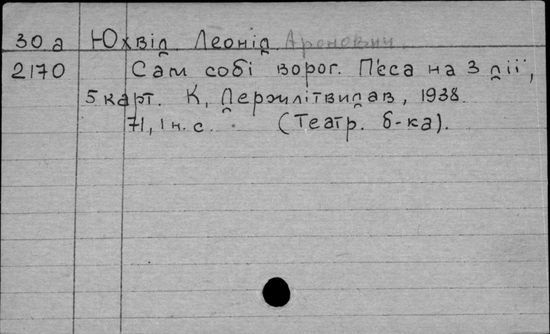 30а Юхвід Леонід Аронович.
2170 Сам собі ворог. П'єса на 3 дії,
5 карт. К, Держлітвидав, 1938.
71, 1 н. с. (Театр. б-ка).